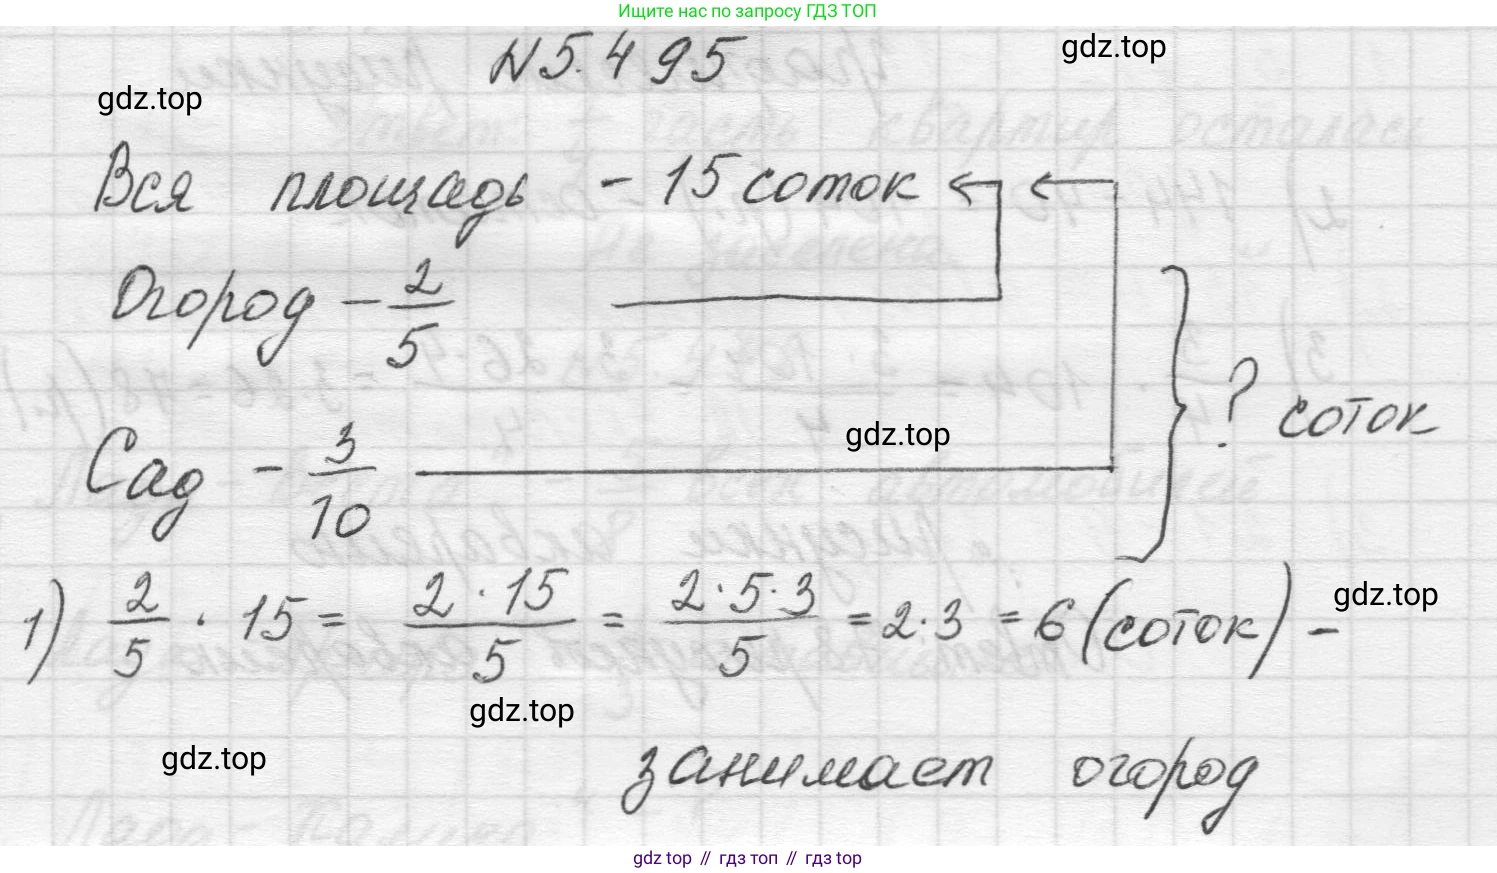 Ищите нас по запросу ГДЗ ТОП
N 5.495
gdz.top
gdz.top
Вся площадь - 15 соток
Огород - 2/5
? соток
gdz.top
Сад - 3/10
1) 2/5 · 15 = 2 · 15/5 = 2·5·3/5 = 2·3 = 6 (соток) -
gdz.top
gdz.top
gdz.top
занимает огород
gdz top // гдз топ // gdz top